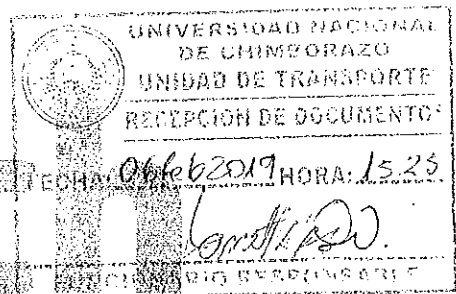 UNIVERSIDAD NACIONAL
DE CHIMBORAZO
UNIDAD DE TRANSPORTE
RECEPCIÓN DE DOCUMENTOS
FECHA: 06 feb 2019 HORA: 15:25
FUNCIONARIO RESPONSABLE